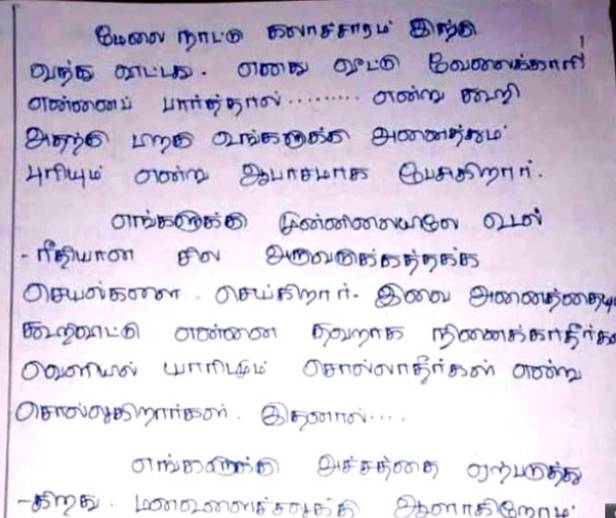 மேலை நாட்டு கலாச்சாரம் இங்கு
வந்து விட்டது. எனது வீட்டு வேலைக்காரி
என்னைப் பார்த்தால்......... என்று கூறி
அதற்கு பிறகு உங்களுக்கு அனைத்தும்
புரியும் என்று ஆபாசமாக பேசுகிறார்.
எங்களுக்கு முன்னிலையிலே உடல்
- ரீதியான சில அருவருக்கத்தக்க
செயல்களை செய்கிறார். இவை அனைத்தையு
கூறிவிட்டு என்னை தவறாக நினைக்காதீர்கள்
வெளியில் யாரிடமும் சொல்லாதீர்கள் என்று
சொல்லுகிறார்கள். இதனால்....
எங்களுக்கு அச்சத்தை ஏற்படுத்து
-கிறது. மனவுளைச்சலுக்கு ஆளாகிறோம்